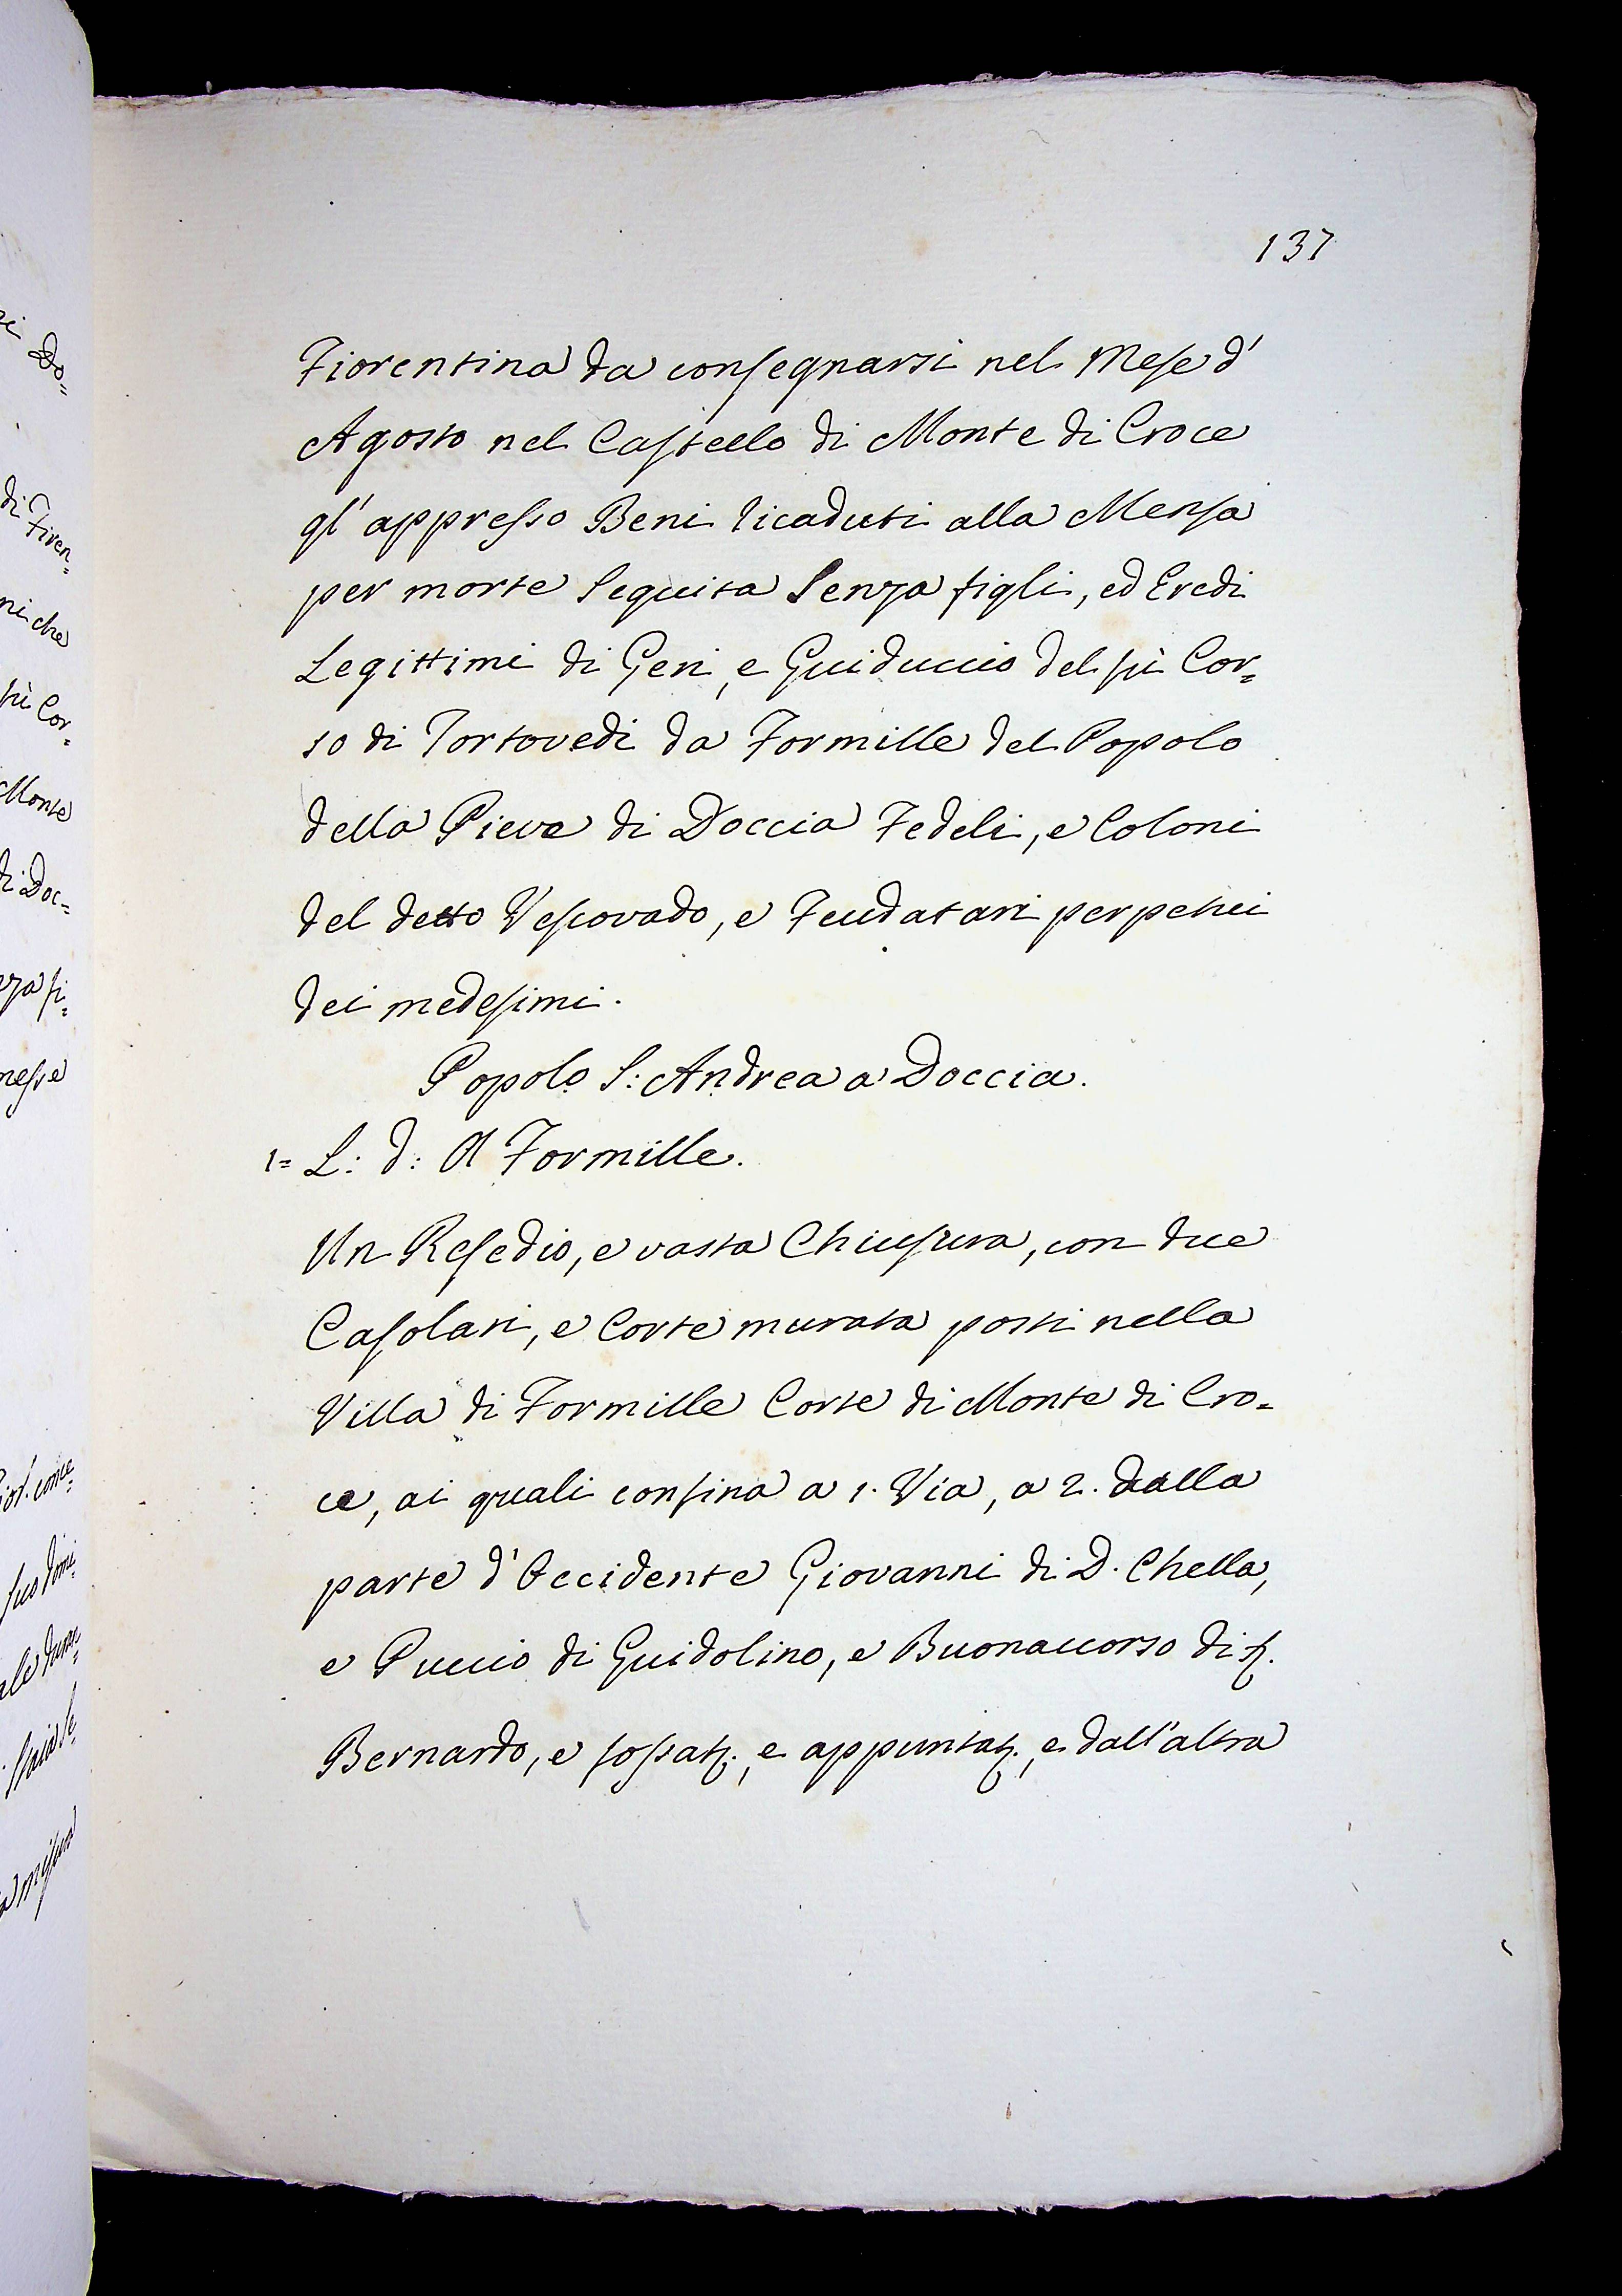 137
Fiorentina da consegnarsi nel Mese d'
Agosto nel Castello di Monte di Croce
gl' appresso Beni ricaduti alla Mensa
per morte seguita senza figli, ed Eredi
Legittimi di Geri, e Guiduccio del fù Cor=
so di Tortovedi da Formille del Popolo
della Pieve di Doccia Fedeli, e Coloni
del detto Vescovado, e Feudatari perpetui
dei medesimi.
Popolo S: Andrea a Doccia.
1= L: d: A Formille.
Un Resedio, e vasta Chiusura, con due
Casolari, e Corte murata posti nella
Villa di Formille Corte di Monte di Cro=
ce, ai quali confina a 1. Via, a 2. dalla
parte d'Occidente Giovanni di D. Chella,
e Puccio di Guidolino, e Buonaccorso di
Bernardo, e e dall'altra